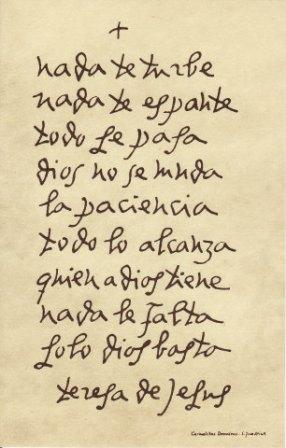 +
nada te turbe
nada te espante
todo se pasa
dios no se muda
la paciencia
todo lo alcanza
quien a dios tiene
nada le falta
solo dios basta
teresa de Jesus
Carmelitas Descalzas